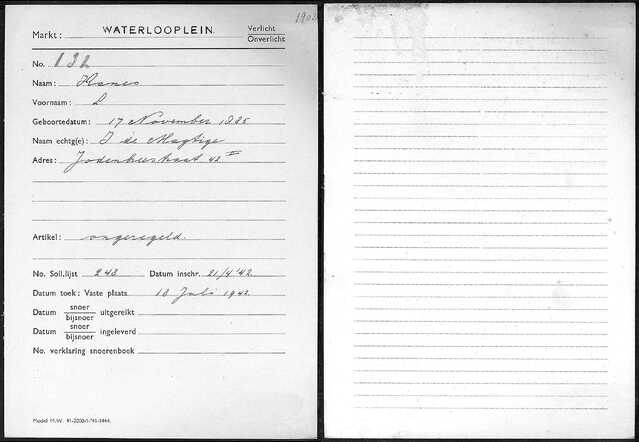 1902
Markt: WATERLOOPLEIN. Verlicht
Onverlicht
No. 132
Naam:
Voornaam: L
Geboortedatum: 17 November 1885
Naam echtg(e): J de Magtige
Adres: Jodenbreestraat 42 II
Artikel: ongeregeld.
No. Soll.lijst 248 Datum inschr. 21/4 '42
Datum toek: Vaste plaats 13 Juli 1942.
Datum snoer uitgereikt
bijsnoer
Datum snoer ingeleverd
bijsnoer
No. verklaring snoerenboek
Model M.W.